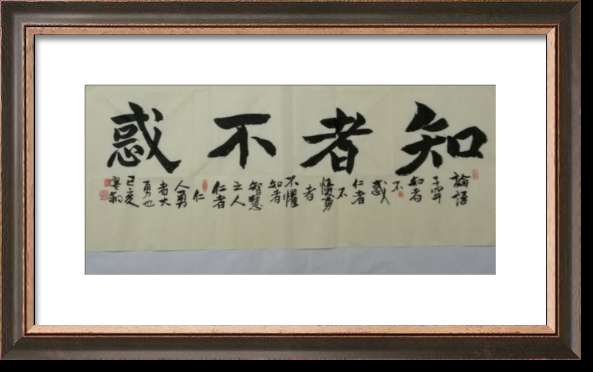 知者不惑
論語
子罕
知者
不
惑
仁者
不
懮勇
者
不懼
知者
智慧
之人
仁者
仁
人勇
者大
勇也
己亥